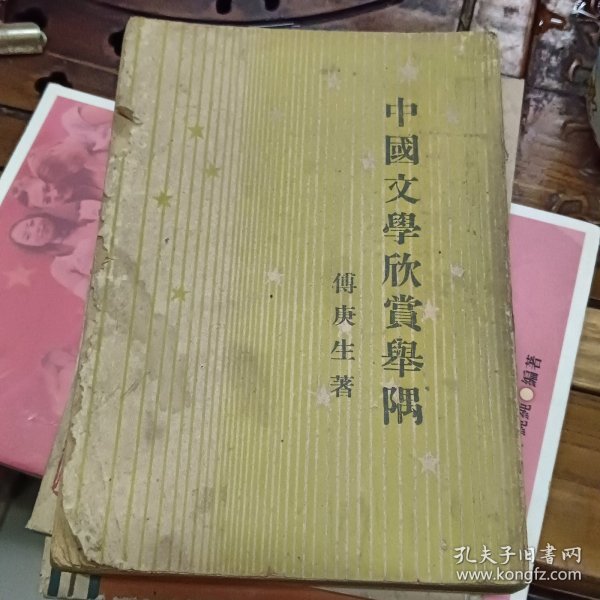 中國文學欣賞舉隅
傅庚生著
孔夫子旧書网
www.kongfz.com